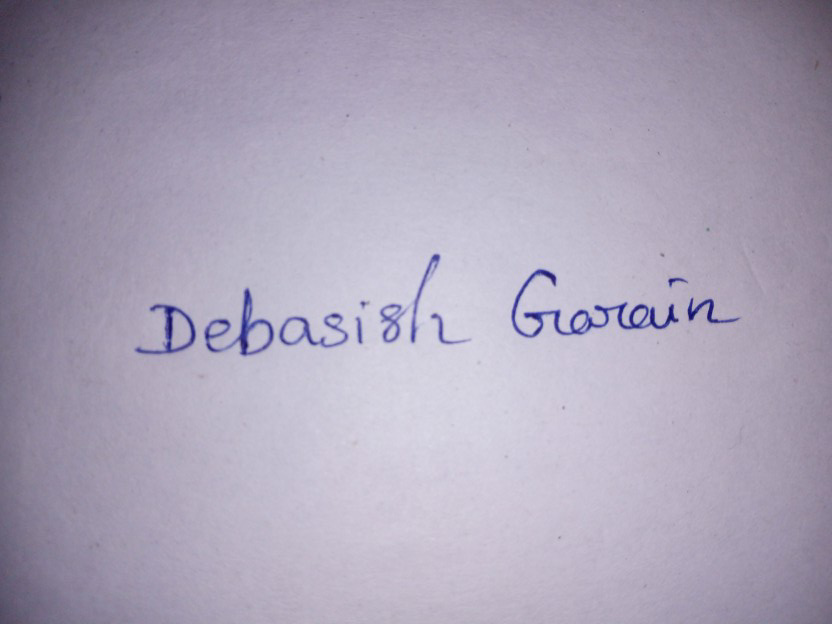 Debasish Garain